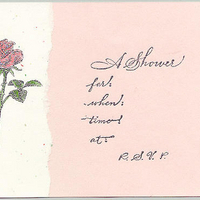 A Shower
for:
when:
time:
at:
R.S.V.P.